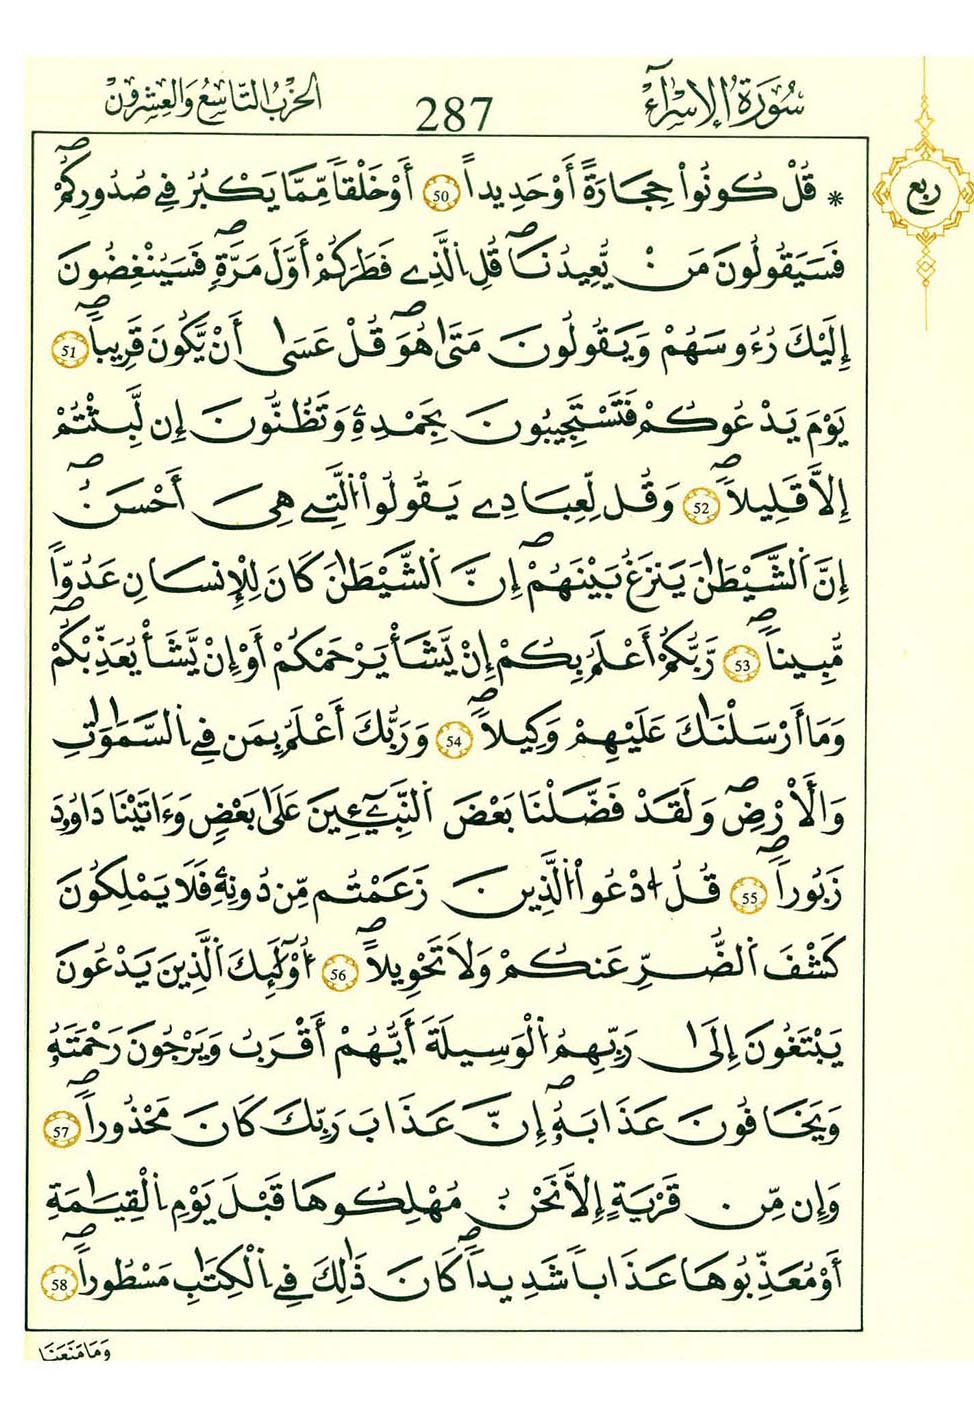 سُورَةُ الإِسْرَآءِ
287
الحِزْبُ التَّاسِعُ وَالعِشْرُونَ
رُبع
* قُلْ كُونُواْ حِجَارَةً أَوْ حَدِيداً 50 أَوْ خَلْقاً مِّمَّا يَكْبُرُ فِے صُدُورِكُمْۖ
فَسَيَقُولُونَ مَنْ يُّعِيدُنَاۖ قُلِ اِلَّذِے فَطَرَكُمْ أَوَّلَ مَرَّةٍۖ فَسَيُنْغِضُونَ
إِلَيْكَ رُءُوسَهُمْ وَيَقُولُونَ مَتَىٰ هُوَۖ قُلْ عَسَىٰ أَنْ يَّكُونَ قَرِيباًۖ 51
يَوْمَ يَدْعُوكُمْ فَتَسْتَجِيبُونَ بِحَمْدِهِۦ وَتَظُنُّونَ إِن لَّبِثْتُمْ
إِلاَّ قَلِيلاًۖ 52 وَقُل لِّعِبَادِے يَقُولُواْ اُلتِے هِيَ أَحْسَنُۖ
إِنَّ اَلشَّيْطَٰنَ يَنزَغُ بَيْنَهُمْۖ إِنَّ اَلشَّيْطَٰنَ كَانَ لِلْإِنسَانِ عَدُوّاً
مُّبِيناًۖ 53 رَّبُّكُمْ أَعْلَمُ بِكُمْ إِنْ يَّشَأْ يَرْحَمْكُمْ أَوْ إِنْ يَّشَأْ يُعَذِّبْكُمْۖ
وَمَا أَرْسَلْنَٰكَ عَلَيْهِمْ وَكِيلاًۖ 54 وَرَبُّكَ أَعْلَمُ بِمَن فِے اِلسَّمَٰوَٰتِ
وَالْأَرْضِۖ وَلَقَدْ فَضَّلْنَا بَعْضَ اَلنَّبِيٓـِٕينَ عَلَىٰ بَعْضٍ وَءَاتَيْنَا دَاوُۥدَ
زَبُوراًۖ 55 قُلُ اُدْعُواْ اُلَّذِينَ زَعَمْتُم مِّن دُونِهِۦ فَلَا يَمْلِكُونَ
كَشْفَ اَلضُّرِّ عَنكُمْ وَلَا تَحْوِيلاًۖ 56 اُوْلَٰٓئِكَ اَلَّذِينَ يَدْعُونَ
يَبْتَغُونَ إِلَىٰ رَبِّهِمُ اُلْوَسِيلَةَ أَيُّهُمْ أَقْرَبُ وَيَرْجُونَ رَحْمَتَهُۥ
وَيَخَافُونَ عَذَابَهُۥۖ إِنَّ عَذَابَ رَبِّكَ كَانَ مَحْذُوراًۖ 57
وَإِن مِّن قَرْيَةٍ إِلاَّ نَحْنُ مُهْلِكُوهَا قَبْلَ يَوْمِ اِلْقِيَٰمَةِ
أَوْ مُعَذِّبُوهَا عَذَاباً شَدِيداًۖ كَانَ ذَٰلِكَ فِے اِلْكِتَٰبِ مَسْطُوراًۖ 58
وَمَا مَنَعَنَا